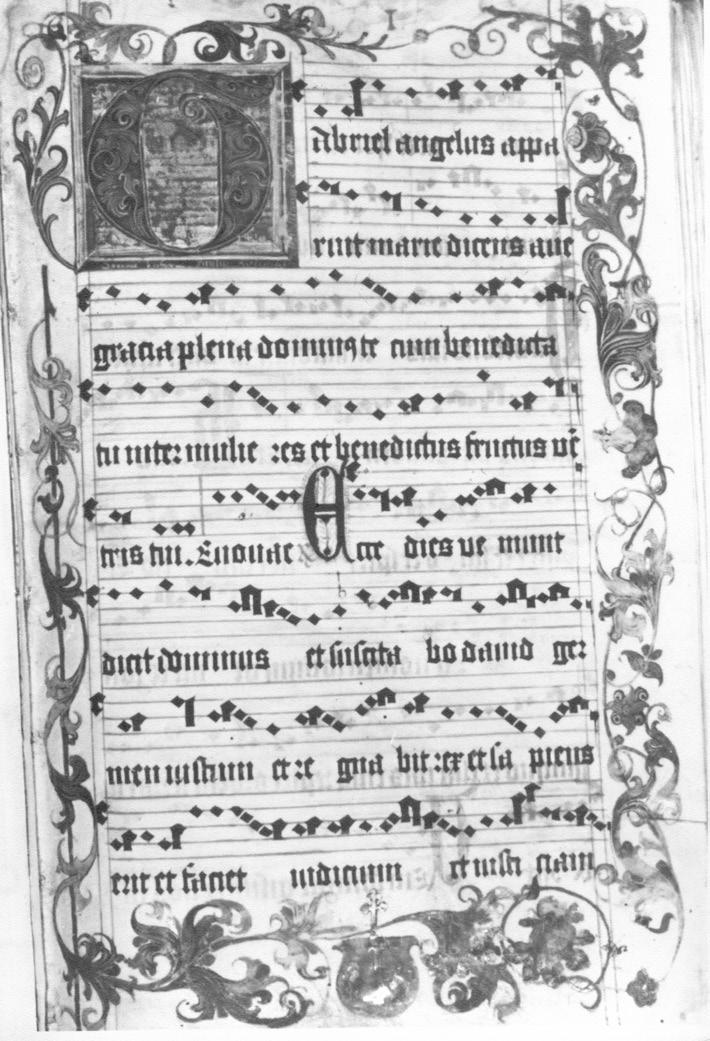 I
Gabriel angelus appa
ruit marie dicens aue
gracia plena dominꝰ te cum benedicta
tu inter mulie res et benedictus fructus vē
tris tui. Euouae Ecce dies ve niunt
dicit dominus et suscita bo dauid ger
men iustum et re gna bit rex et sa piens
erit et faciet iudicium et iusti ciam